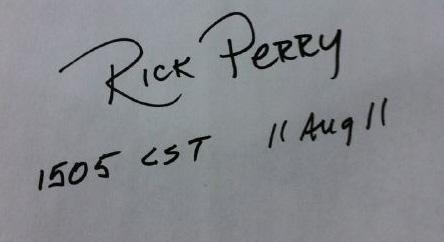 Rick Perry
1505 CST 11 Aug 11